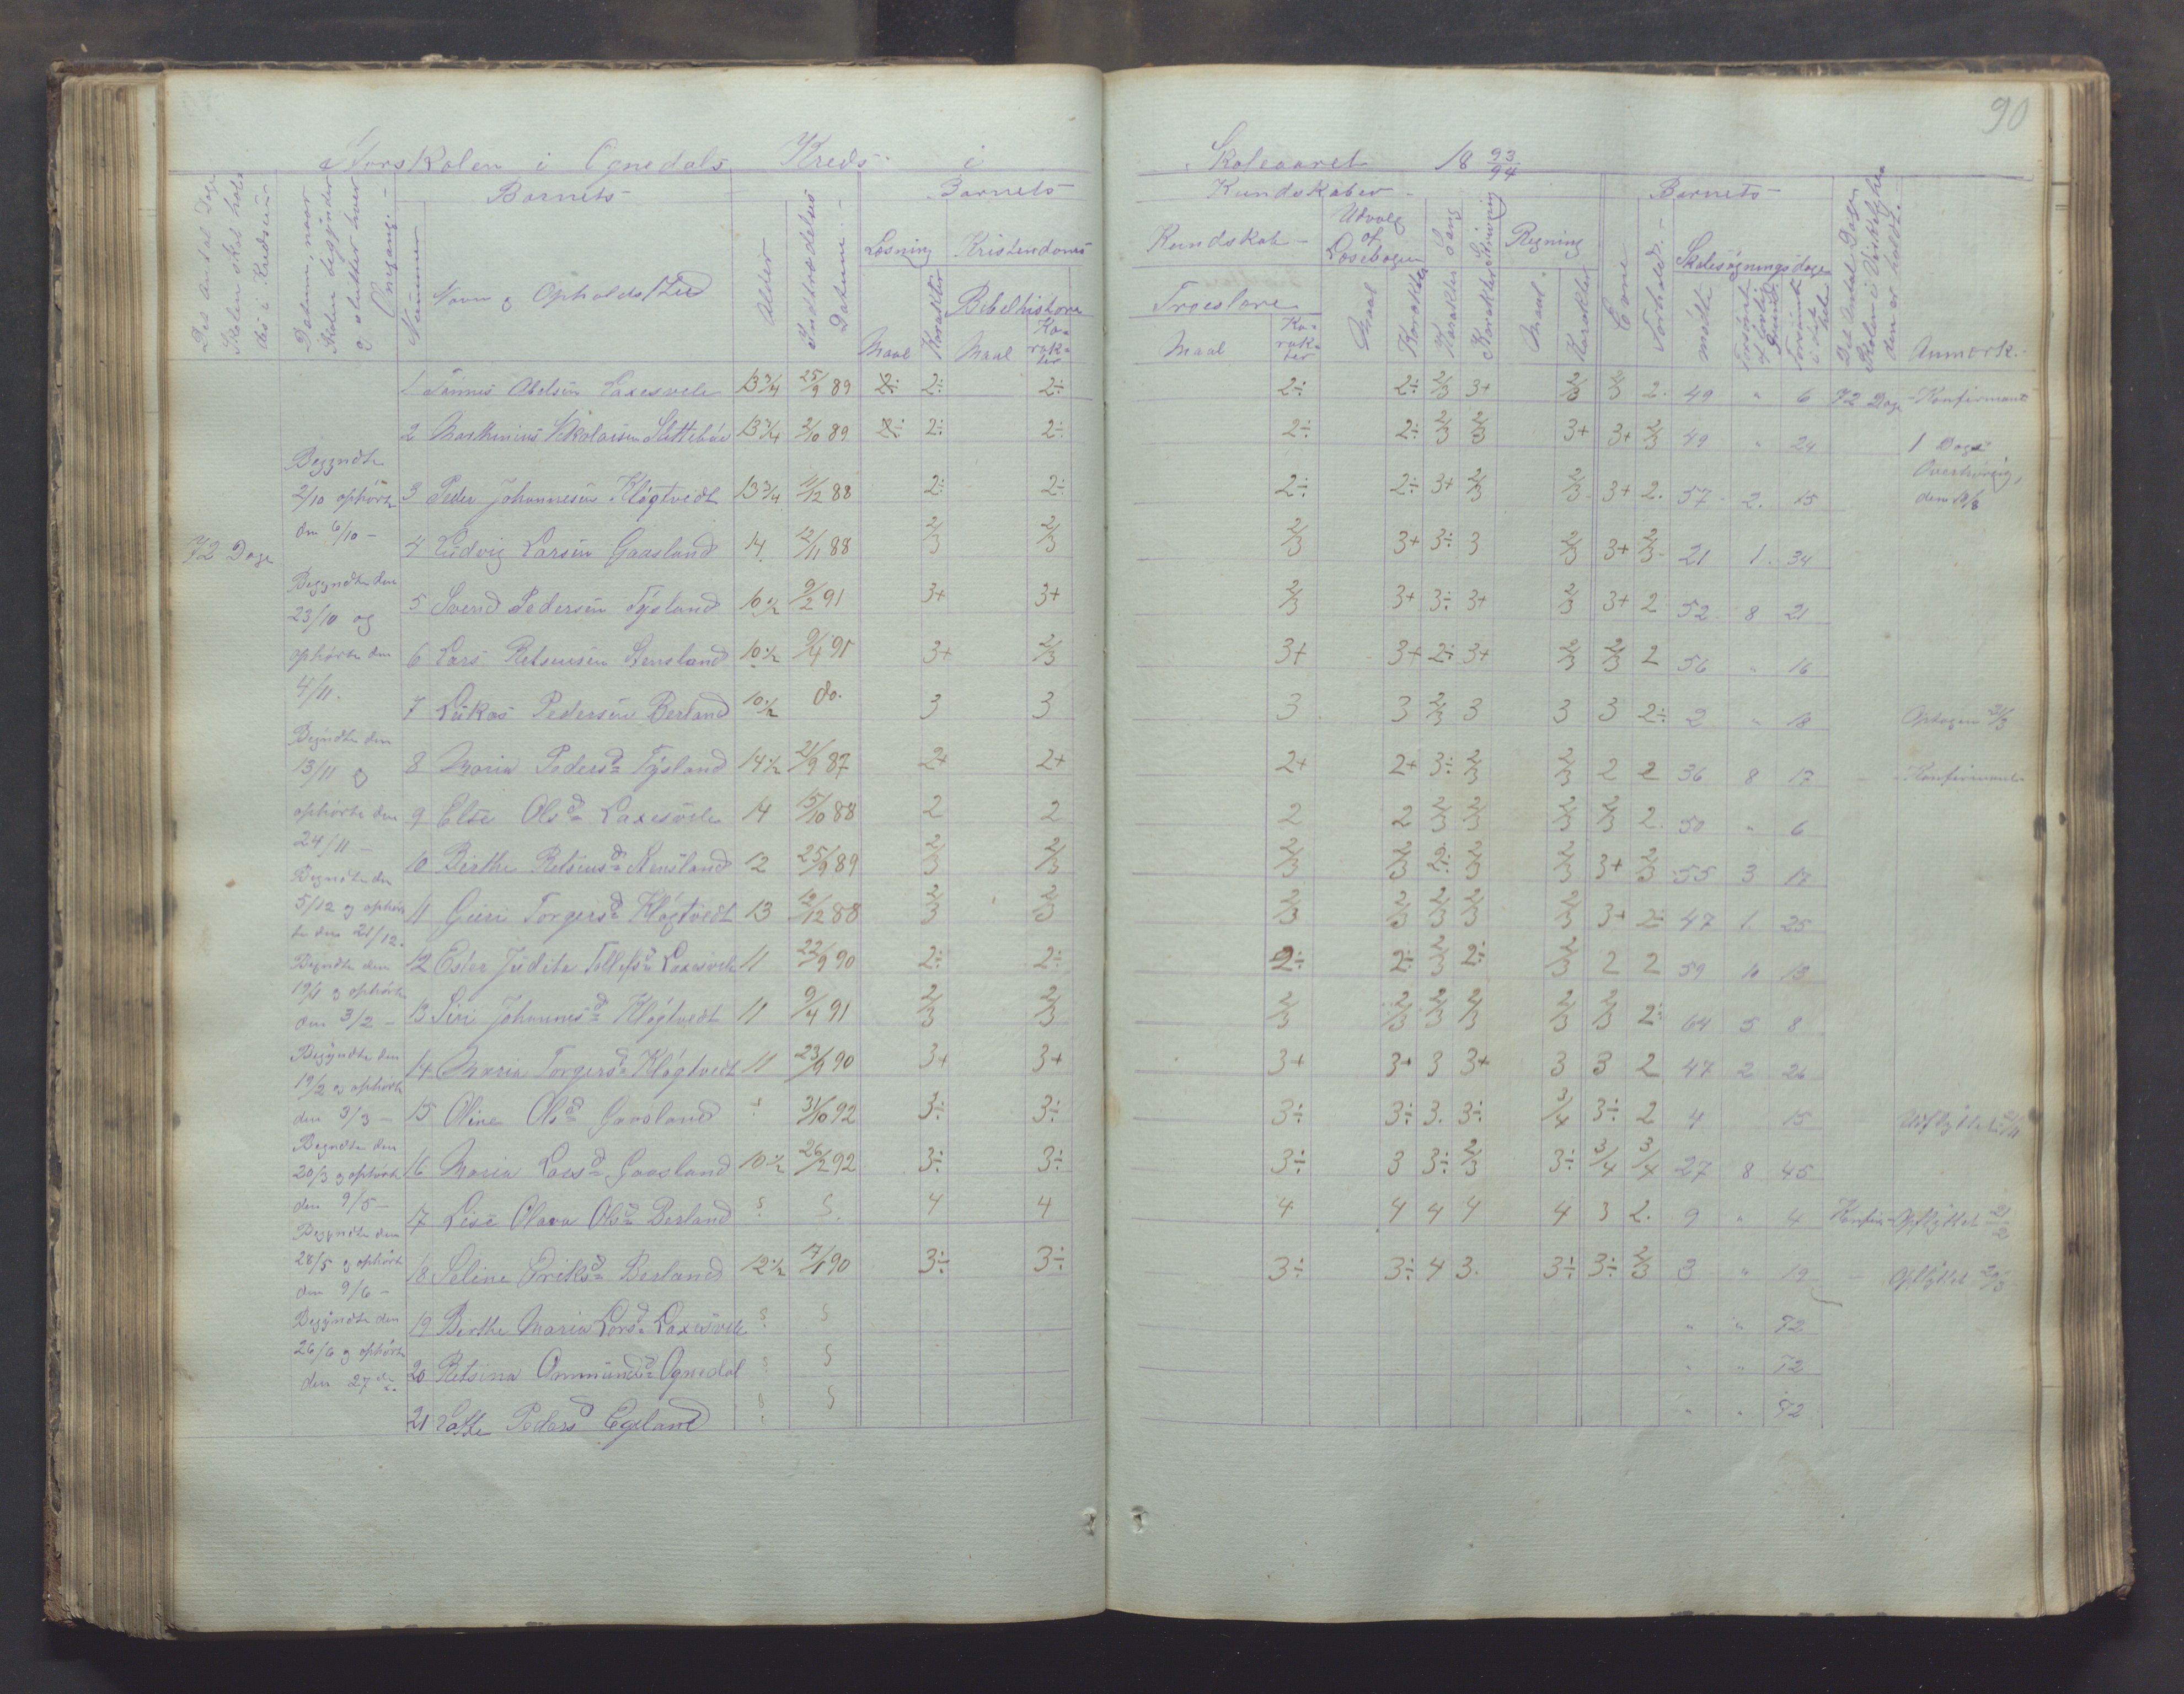 90
Storskolen i Ognedals Kreds i Skoleaaret 18 93/94
Det Antal Dage Skolen skal holdes i Kredsen
Datum, naar Skolen begynder og slutter hver Omgang.-
Barnets
Nummer
Navn og Opholdssted
Alder
Indtrædelses Datum.-
Barnets
Læsning
Maal
Karakter
Kristendoms
Bibelhistorie
Maal
Karakter
Kundskaber-
Kundskab-
Troeslære
Maal
Karakter
Udvalg af Læsebogen
Maal
Karakter
Karakter Sang
Karakter Skrivning
Regning
Maal.
Karakter
Barnets-
Evne
Forhold.-
Skolesøgningsdage
mødte
Forsømt af lovlig Grund
Forsømt i det hele
Det Antal Dage Skolen i Virkeligheden er holdt.
Anmærk.-
72 Dage
Begyndte
2/10 ophørte
den 6/10 -
Begyndte den
23/10 og
ophørte den
4/11.
Begyndte den
13/11 og
ophørte den
24/11 -
Begyndte den
5/12 og ophørte den 21/12.
Begyndte den
19/1 og ophørte
den 3/2 -
Begyndte den
19/2 og ophørte
den 3/3 -
Begyndte den
20/3 og ophørte
den 9/5 -
Begyndte den
28/5 og ophørte
den 9/6 -
Begyndte den
26/6 og ophørte
den 27de
1 Tønnes Abelsen Laxesvele 13 3/4 25/9 89 2÷ 2÷ 2÷ 2÷ 2÷ 2/3 3+ 2/3 2/3 2. 49 " 6 72 Dage - Konfirmant
2 Marthinius Nikolaisen Slettebøe 13 3/4 2/10 89 2÷ 2÷ 2÷ 2÷ 2÷ 2/3 2/3 3+ 3+ 2/3 49 " 24 1 Dags
Overhøring,
3 Peder Johannesen Kløgtvedt 13 3/4 11/12 88 2÷ 2÷ 2÷ 2÷ 3+ 2/3 2/3 3+ 2. 57 2. 15
4 Ludvig Larsen Gaasland 14 12/11 88 2/3 2/3 2/3 3+ 3÷ 3 2/3 3+ 2/3 21 1. 34
5 Svend Pedersen Tysland 10 1/2 9/2 91 3+ 3+ 2/3 3+ 3÷ 3+ 2/3 3+ 2 52 8 21
6 Lars Retsiusen Stensland 10 1/2 9/4 91 3+ 2/3 3+ 3+ 2÷ 3+ 2/3 2/3 2 56 " 16
7 Lukas Pedersen Berland 10 1/2 do. 3 3 3 3 2/3 3 3 3 2÷ 2 " 18
8 Maria Pedersd Tysland 14 1/2 21/9 87 2+ 2+ 2+ 2+ 3÷ 2/3 2/3 2 2 36 8 17 - Konfirmant
9 Else Olsd Laxesvele 14 15/10 88 2 2 2 2 2/3 2/3 2/3 2/3 2. 50 " 6
10 Birthe Retsiusd Stensland 12 25/9 89 2/3 2/3 2/3 2/3 2÷ 2/3 2/3 3+ 2/3 55 3 17
11 Guri Torgersd Kløgtvedt 13 12/12 88 2/3 2/3 2/3 2/3 2/3 2/3 2/3 3+ 2÷ 47 1 25
12 Ester Judite Tollefsd Laxesvele 11 22/9 90 2÷ 2÷ 2÷ 2÷ 2/3 2÷ 2/3 2 2 59 10 13
13 Siri Johannesd Kløgtvedt 11 9/4 91 2/3 2/3 2/3 2/3 2/3 2/3 2/3 2/3 2÷ 64 5 8
14 Maria Torgersd Kløgtvedt 11 23/9 90 3+ 3+ 3+ 3+ 3 3+ 3 3 2 47 2 26
15 Oline Olsd Gaasland 31/10 92 3÷ 3÷ 3÷ 3÷ 3. 3÷ 3/4 3÷ 2 4 15
16 Maria Larsd Gaasland 10 1/2 26/2 92 3÷ 3÷ 3÷ 3 3÷ 2/3 3÷ 3/4 3/4 27 8 45
17 Lise Olava Olsd Berland 4 4 4 4 4 4 4 3 2. 9 " 4
18 Seline Eriksd Berland 12 1/2 17/1 90 3÷ 3÷ 3÷ 3÷ 4 3. 3÷ 3÷ 2/3 3 " 19
19 Birthe Maria Larsd Laxesvele " " 72
20 Retsina Ommundsd Ognedal " " 72
21 Pedersd Egeland " " 72